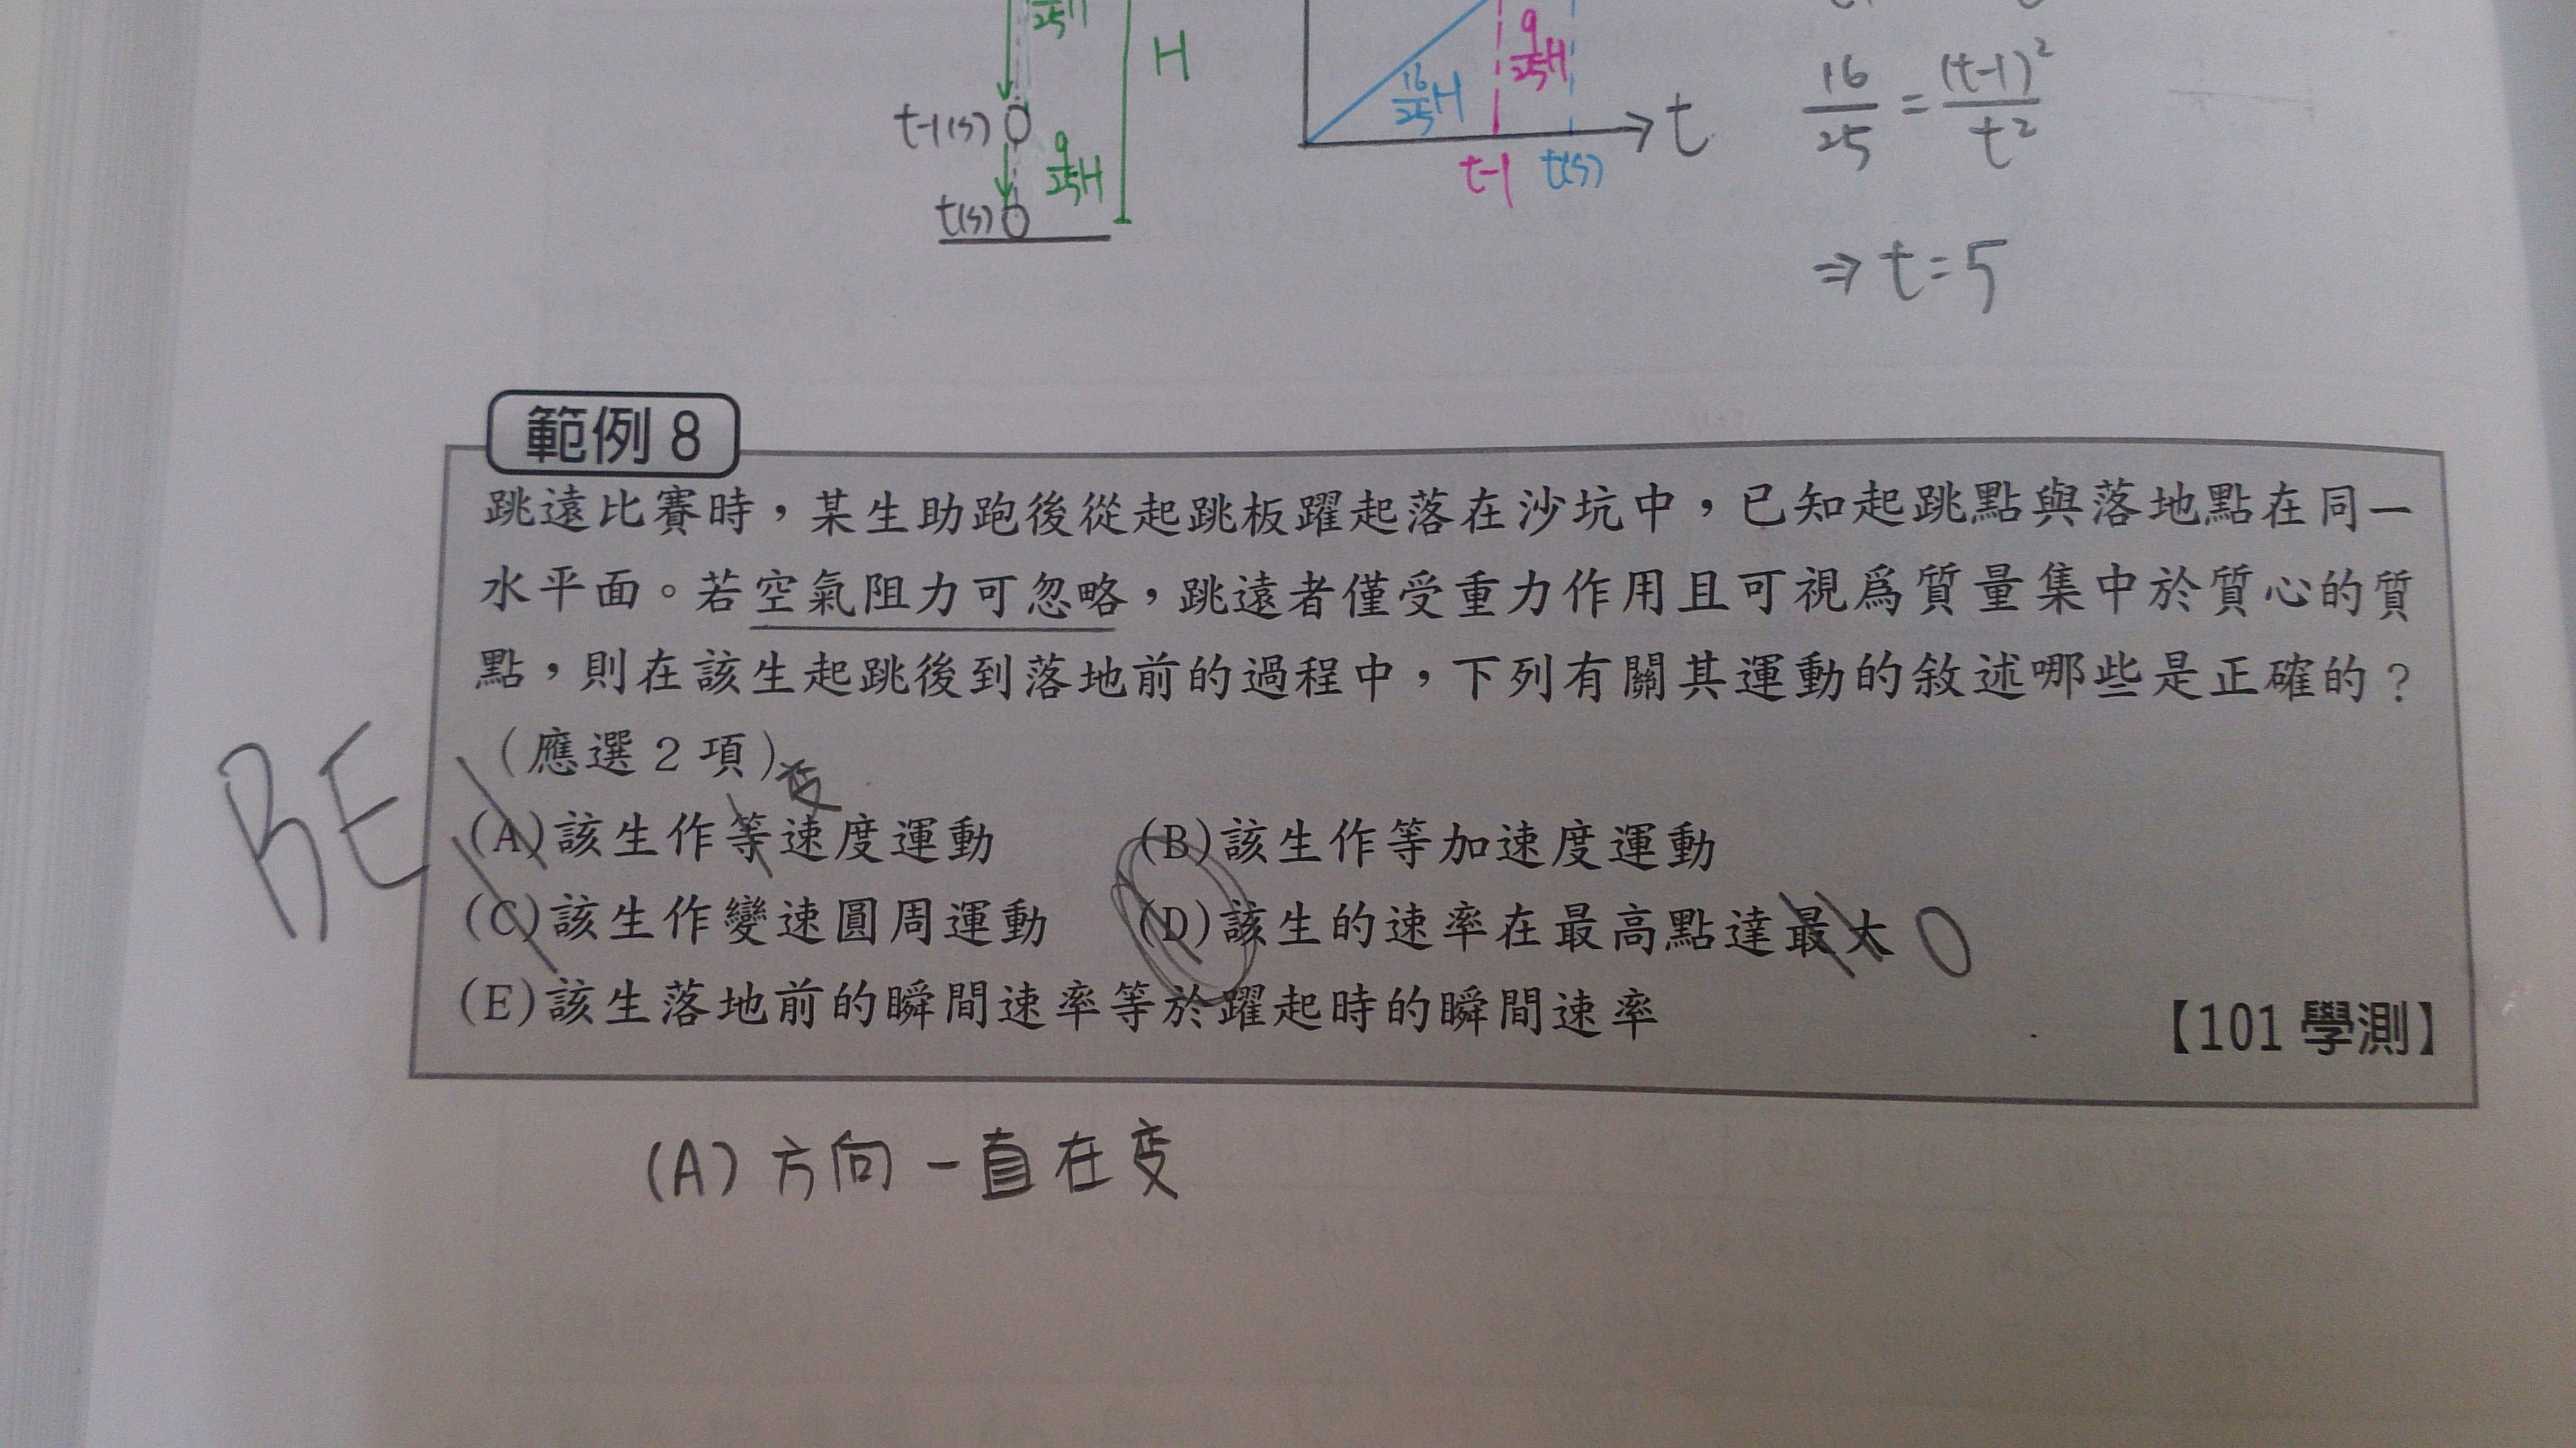 25 H
H
t-1(s)
9/25 H
t(s)
16/25 H
9/25 H
t
t-1
t(s)
16/25 = (t-1)²/t²
⇒ t=5
範例 8
跳遠比賽時，某生助跑後從起跳板躍起落在沙坑中，已知起跳點與落地點在同一
水平面。若空氣阻力可忽略，跳遠者僅受重力作用且可視為質量集中於質心的質
點，則在該生起跳後到落地前的過程中，下列有關其運動的敘述哪些是正確的？
（應選 2 項）
变
BE
(A)該生作等速度運動 (B)該生作等加速度運動
(C)該生作變速圓周運動 (D)該生的速率在最高點達最大 0
(E)該生落地前的瞬間速率等於躍起時的瞬間速率
【101 學測】
(A) 方向一直在变